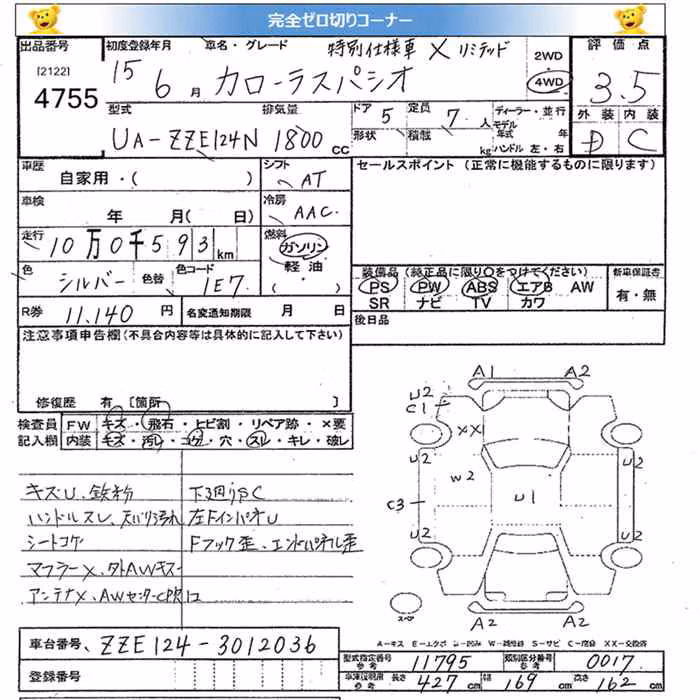 完全ゼロ切りコーナー
出品番号 初度登録年月 車名・グレード 特別仕様車 X リミテッド 2WD 評価点
[2122] 15 6 月 カローラスパシオ 4WD 3.5
4755 型式 排気量 ドア 5 定員 7 人 ディーラー・並行 外装 内装
UA-ZZE124N 1800 cc 形状 積載 kg モデル年式 年 D C
ハンドル 左・右
車歴 シフト セールスポイント (正常に機能するものに限ります)
自家用・( ) AT
車検 冷房
年 月( 日) AAC
走行 燃料
10万0千593km ガソリン
軽油
( )
色 シルバー 色替 色コード 1E7 装備品(純正品に限り○をつけてください) 新車保証書
PS PW ABS エアB AW 有・無
SR ナビ TV カワ
R券 11,140 円 名変通知期限 月 日 後日品
注意事項申告欄(不具合内容等は具体的に記入して下さい)
修復歴 有 [箇所 ]
検査員 FW キズ・飛石・ヒビ割・リペア跡・×要
記入欄 内装 キズ・汚レ・コゲ・穴・スレ・キレ・破レ
キズU、鉄粉 下回りSC
ハンドルスレ、天バリ汚れ 左FインパネU
シートコゲ Fフック歪、エンドパネル歪
マフラーX、外AWキズ
アンテナX、AWセンターCP欠
A1 A2
U2
C1
XX
U2 W2 U1 U2
C3
U2 U2
A2 A2
スペア
A-キズ E-エクボ U-凹み W-補修跡 S-サビ C-腐蝕 XX-交換済
車台番号 ZZE124-3012036
登録番号
型式指定番号 参考 11795 類別区分番号 参考 0017
車庫証明用 参考 長さ 427 cm 幅 169 cm 高さ 162 cm